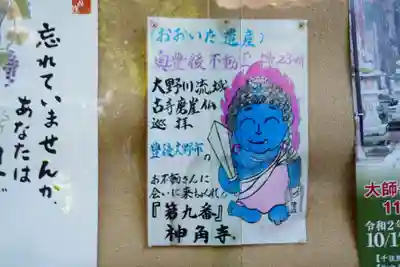 忘れていませんか、
あなたは
(おおいた遺産)
奥豊後不動
大野川流域
古寺磨崖仏
巡拝
豊後大野市の
お不動さんに
会いに来ちょくれ
『第九番』
神角寺
大師
令和2年